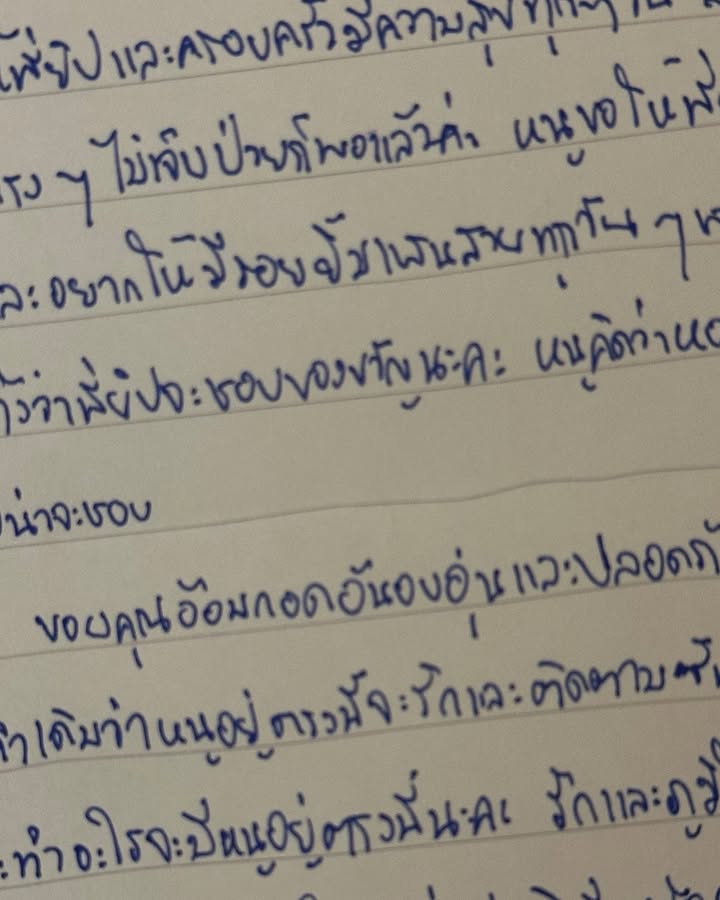 พี่ยิปและครอบครัวมีความสุขทุกๆ
แรง ๆ ไม่เจ็บป่วยก็พอแล้วค่ะ หนูขอให้พี่
ละอยากให้มีรอยยิ้มแสนสวยทุกวัน ๆ
ว่าพี่ยิปจะชอบของขวัญนะคะ หนูคิดว่า
น่าจะชอบ
ขอบคุณอ้อมกอดอันอบอุ่นและปลอดภั
คำเดิมว่าหนูอยู่ตรงนี้จะรักและติดตาม
ะทำอะไรจะมีหนูอยู่ตรงนี้นะคะ รักและภูมิ